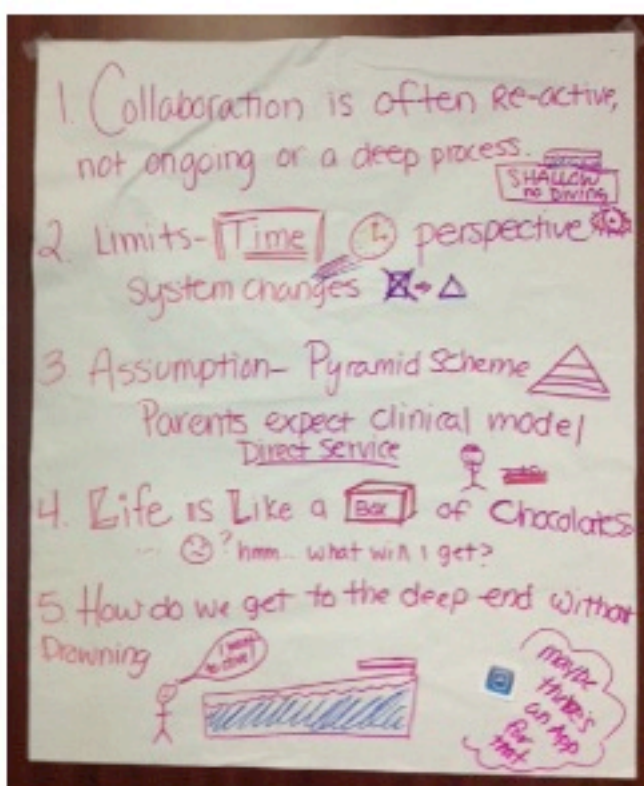 1. Collaboration is often Re-active,
not ongoing or a deep process.
SHALLOW
no DIVING
2. Limits- Time perspective
system changes
3. Assumption- Pyramid Scheme
Parents expect clinical model
Direct Service
4. Life is Like a Box of Chocolates
... ? hmm... what will I get?
5. How do we get to the deep end without
Drowning
I want
to dive!
maybe
there's
an App
for
that